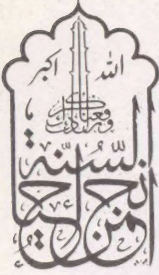 الله اكبر
ورفعنا لك ذكرك
انجمن احياء
السُّنّة